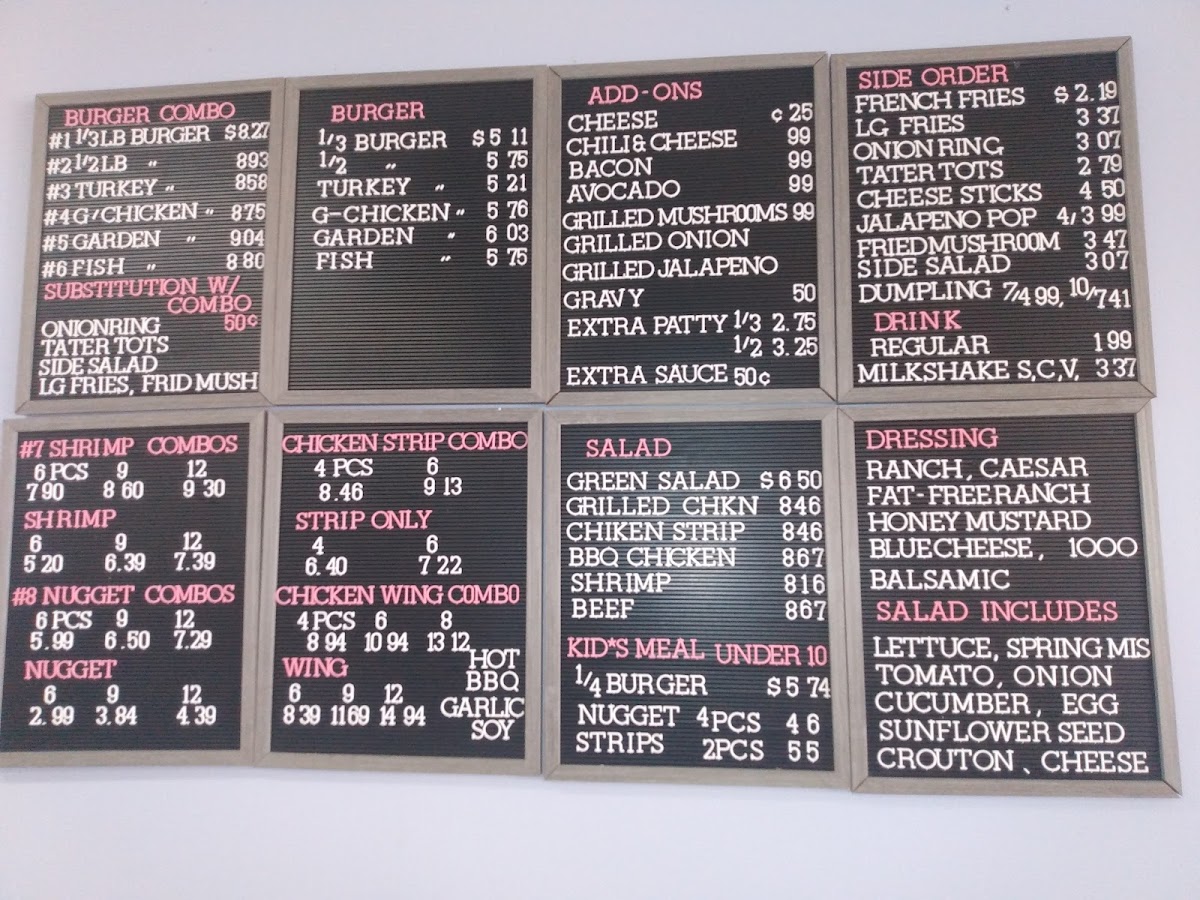 BURGER COMBO
#1 1/3LB BURGER $8.27
#2 1/2LB " 893
#3 TURKEY " 858
#4 G/CHICKEN " 875
#5 GARDEN " 904
#6 FISH " 8 80
SUBSTITUTION W/
COMBO
ONIONRING 50¢
TATER TOTS
SIDE SALAD
LG FRIES, FRID MUSH
BURGER
1/3 BURGER $5 11
1/2 " 5 75
TURKEY " 5 21
G-CHICKEN " 5 76
GARDEN " 6 03
FISH " 5 75
ADD-ONS
CHEESE ¢ 25
CHILI & CHEESE 99
BACON 99
AVOCADO 99
GRILLED MUSHROOMS 99
GRILLED ONION
GRILLED JALAPENO
GRAVY 50
EXTRA PATTY 1/3 2.75
1/2 3.25
EXTRA SAUCE 50¢
SIDE ORDER
FRENCH FRIES $2.19
LG FRIES 3 37
ONION RING 3 07
TATER TOTS 2 79
CHEESE STICKS 4 50
JALAPENO POP 4/3 99
FRIED MUSHROOM 3 47
SIDE SALAD 3 07
DUMPLING 7/4 99, 10/741
DRINK
REGULAR 1 99
MILKSHAKE S,C,V, 3 37
#7 SHRIMP COMBOS
6 PCS 9 12
7 90 8 60 9 30
SHRIMP
6 9 12
5 20 6.39 7.39
#8 NUGGET COMBOS
6 PCS 9 12
5.99 6.50 7.29
NUGGET
6 9 12
2.99 3.84 4.39
CHICKEN STRIP COMBO
4 PCS 6
8.46 9 13
STRIP ONLY
4 6
6.40 7 22
CHICKEN WING COMBO
4 PCS 6 8
8 94 10 94 13 12
WING HOT
BBQ
6 9 12
8 39 1169 14 94 GARLIC
SOY
SALAD
GREEN SALAD $6 50
GRILLED CHKN 846
CHIKEN STRIP 846
BBQ CHICKEN 867
SHRIMP 816
BEEF 867
KID*S MEAL UNDER 10
1/4 BURGER $5 74
NUGGET 4PCS 4 6
STRIPS 2PCS 5 5
DRESSING
RANCH, CAESAR
FAT-FREERANCH
HONEY MUSTARD
BLUECHEESE, 1000
BALSAMIC
SALAD INCLUDES
LETTUCE, SPRING MIS
TOMATO, ONION
CUCUMBER, EGG
SUNFLOWER SEED
CROUTON , CHEESE